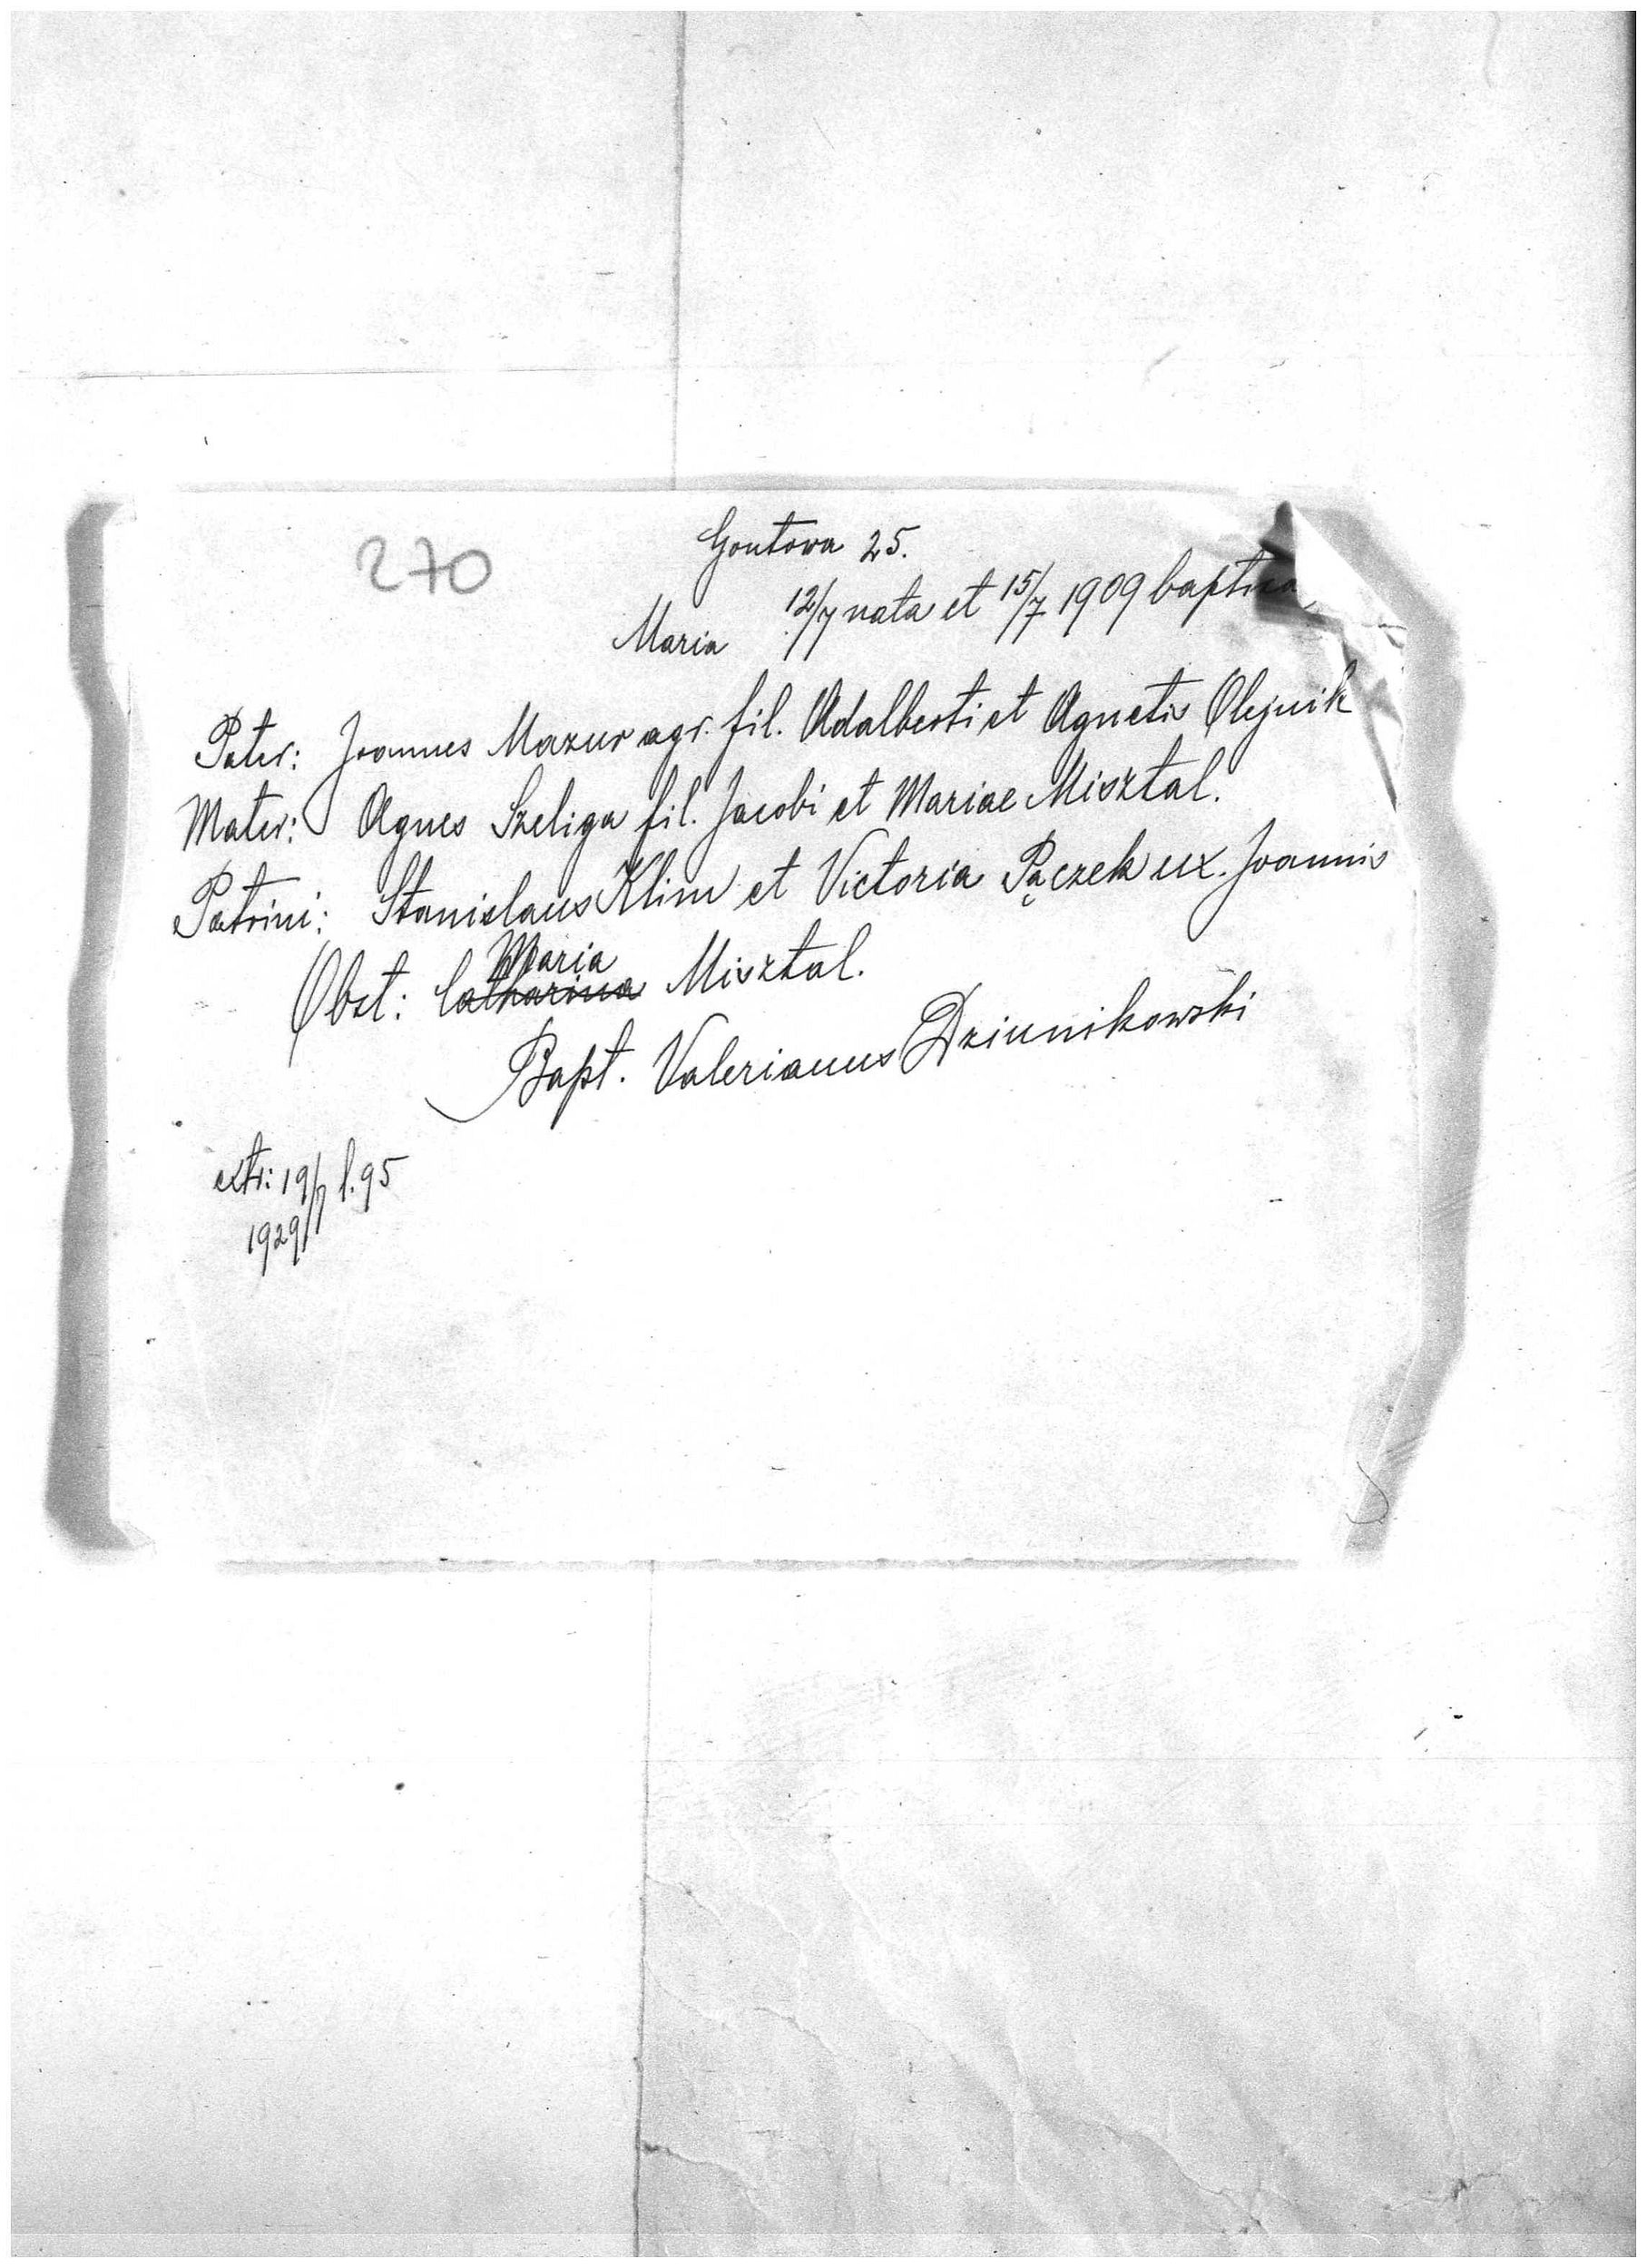 270
Gontowa 25.
Maria 12/7 nata et 15/7 1909
Pater: Joannes Mazur agr. fil. Adalberti et Agnetis Olejnik
Mater: Agnes Szeliga fil. Jacobi et Mariae Misztal.
Patrini: Stanislaus Klim et Victoria Pączek ux. Joannis
Maria
Obst: Catharina Misztal.
Bapt. Valerianus Dziunikowski
extr: 19/7 l. 95
1929